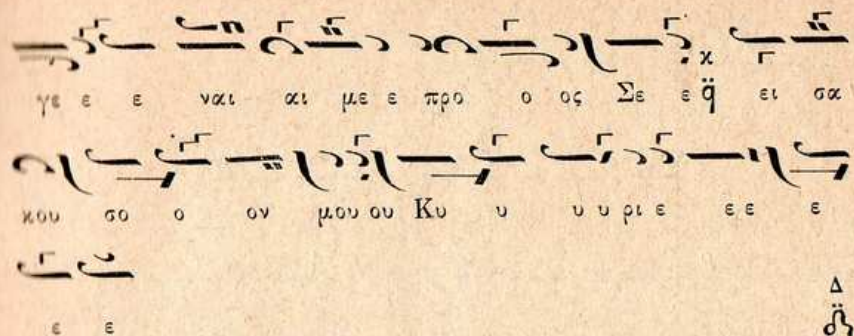 γε ε ε ναι αι με ε προ ο ος Σε ε ει σα
κου σο ο ον μου ου Κυ υ υ υ ρι ε ε ε ε
ε ε
Δ